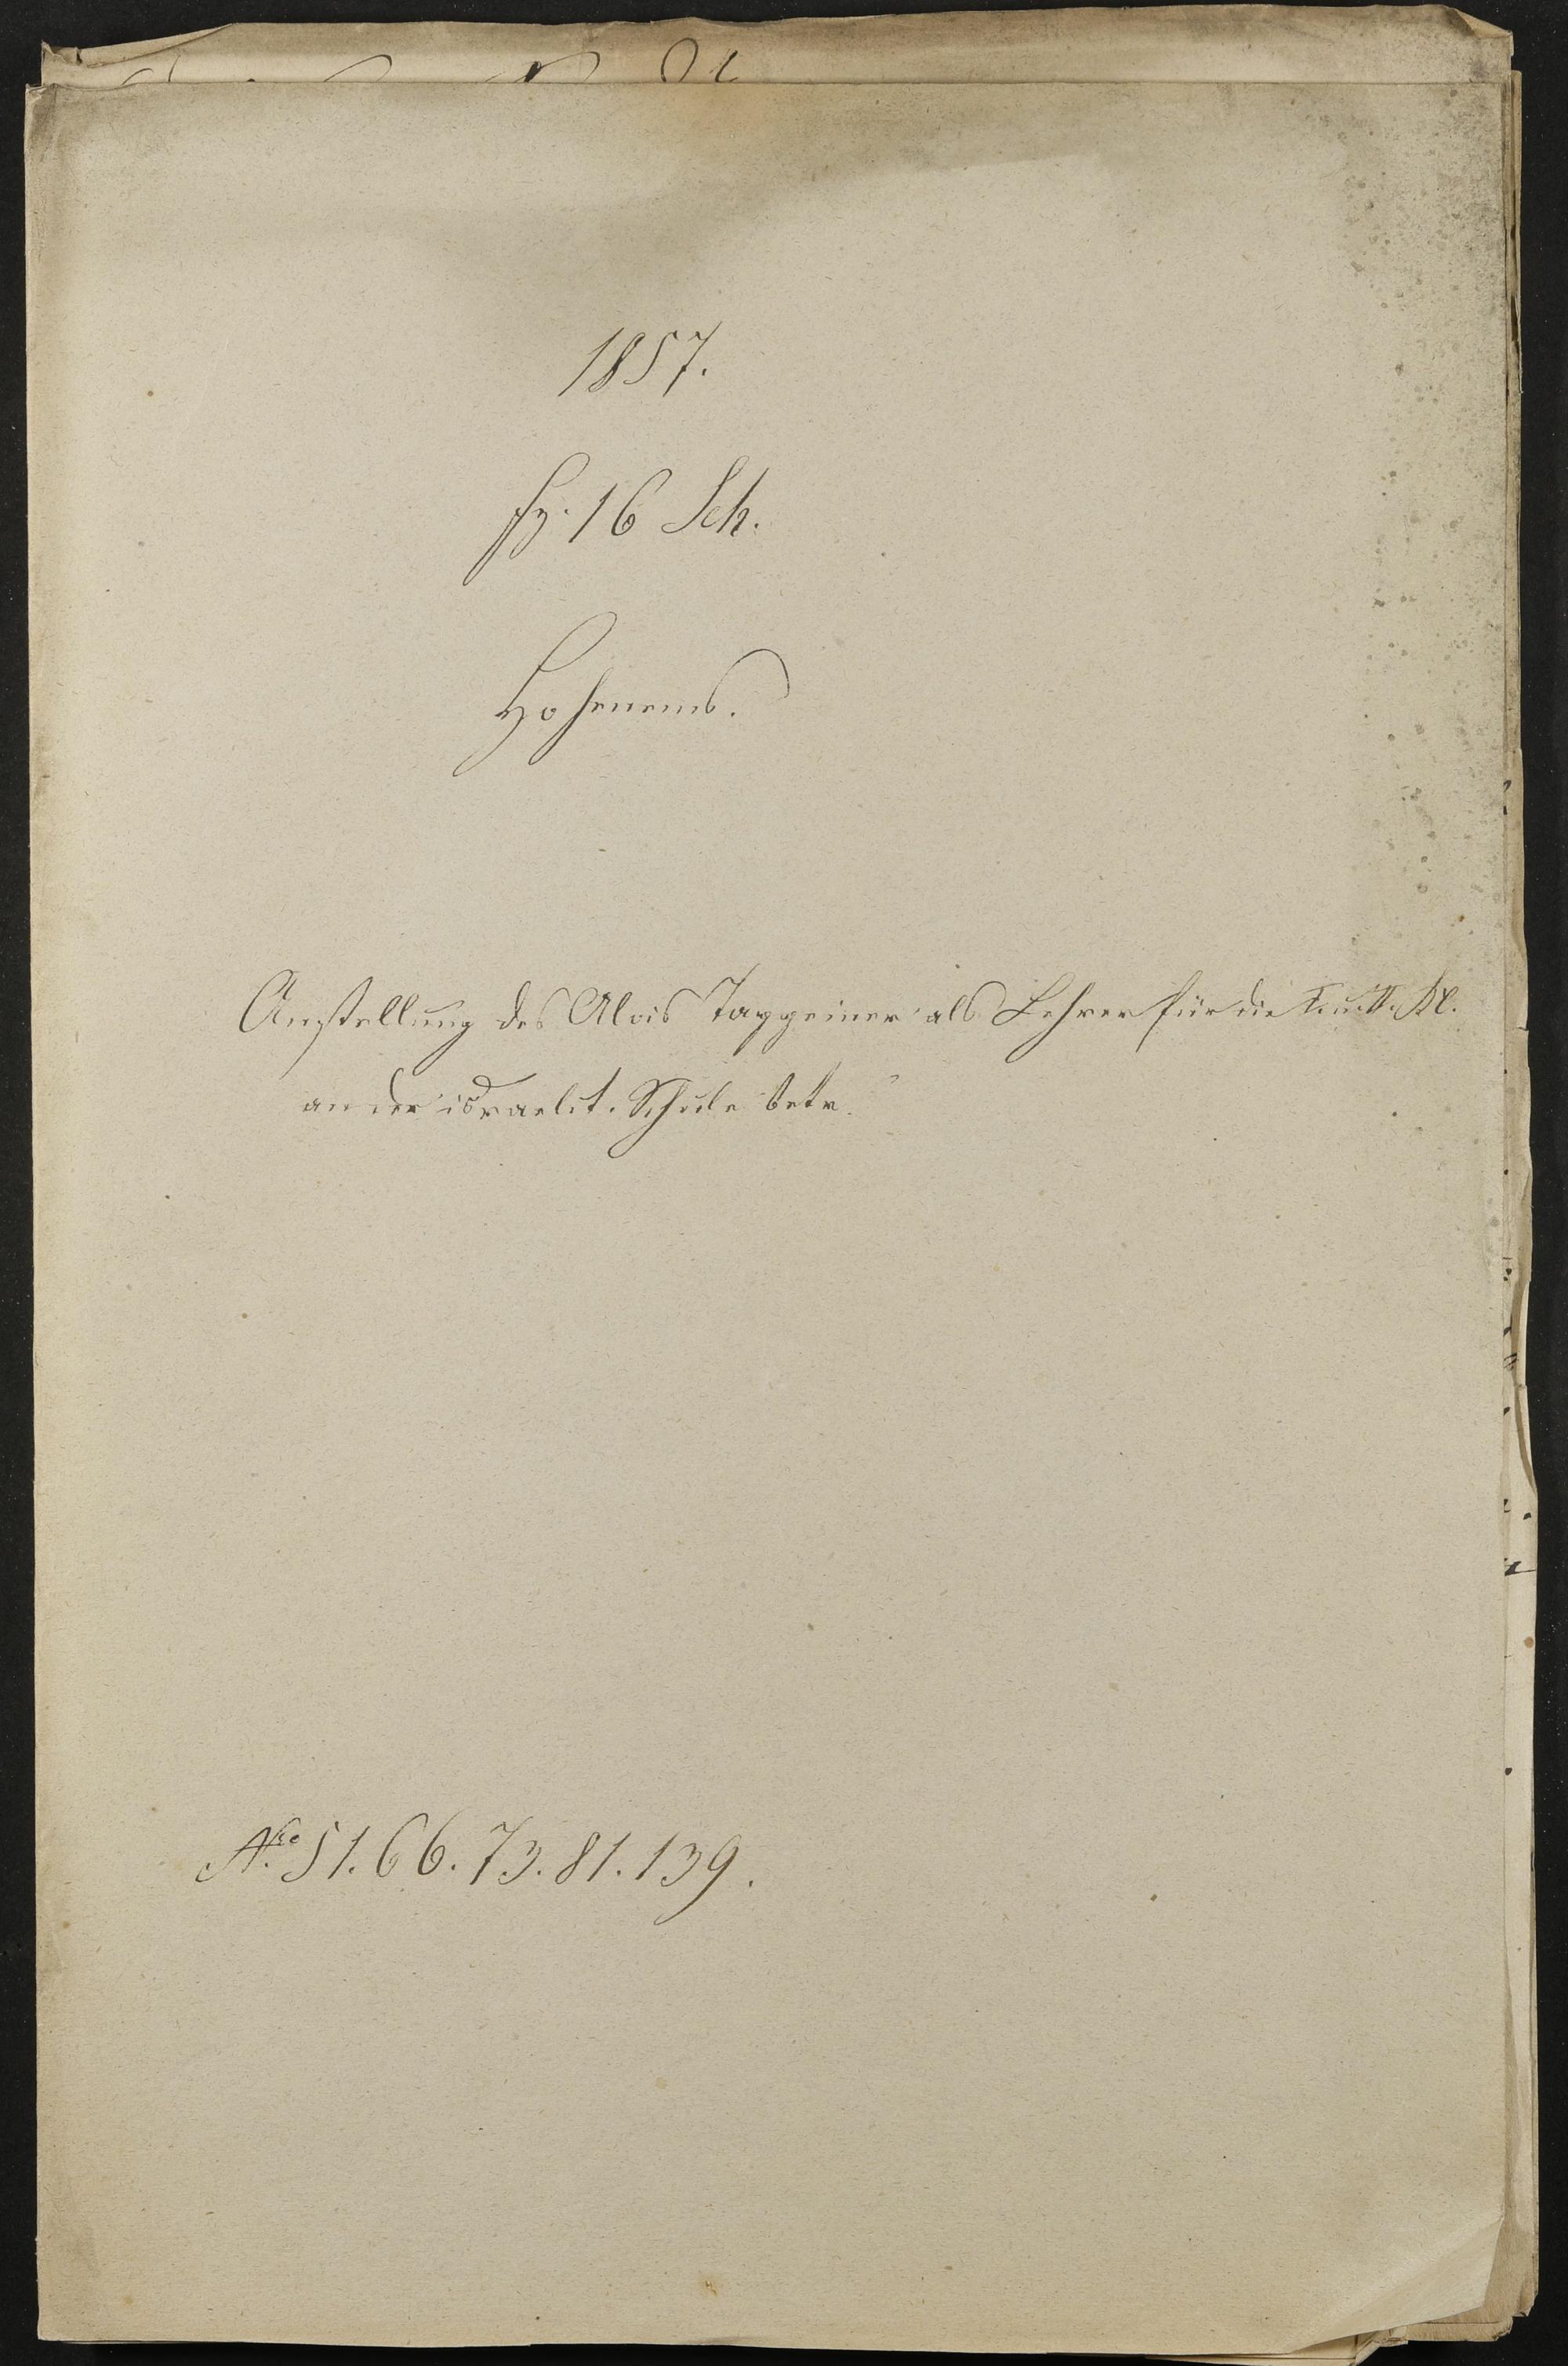 1857.
fz. 16 Sch.
Hohenems.
Anstellung des Alois Tappeiner als Lehrer für die I. u. II. Kl.
an der israelit. Schule betr.
No 51. 66. 73. 81. 139.